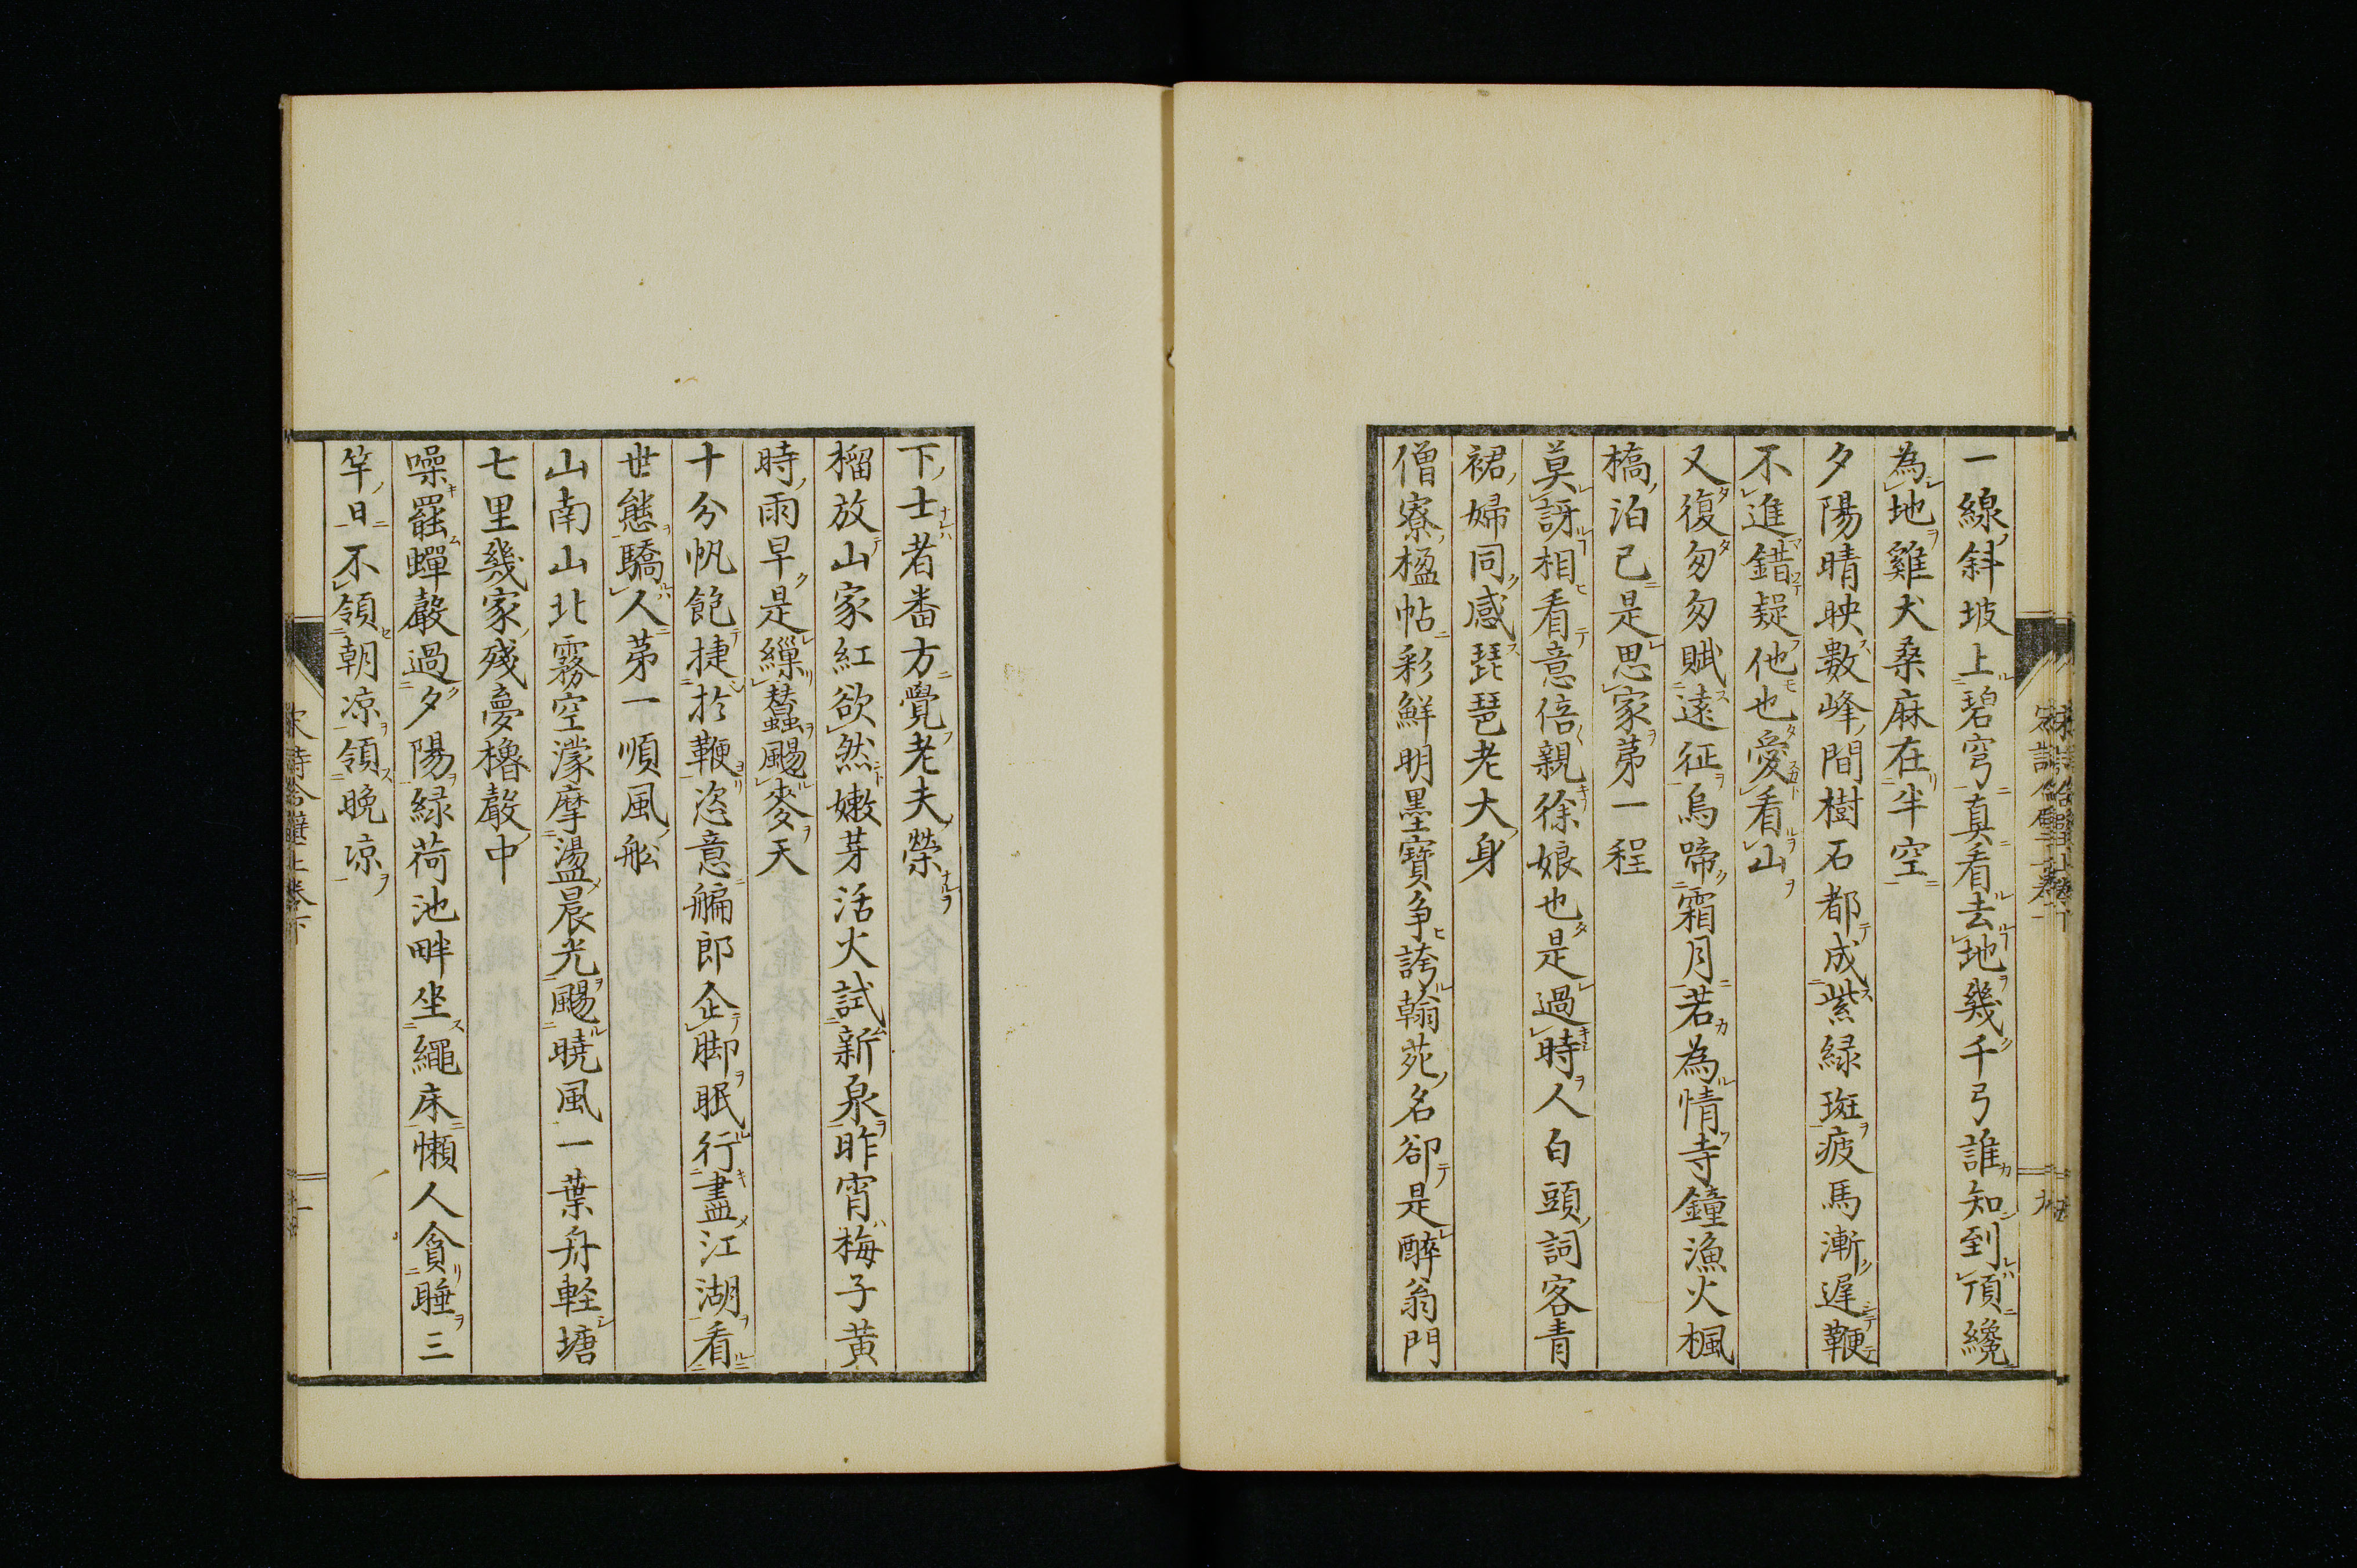 一線斜坡上碧穹真看去地幾千弓誰知到頂纔
為地雞犬桑麻在半空
夕陽晴映數峰間樹石都成紫緑斑疲馬漸遲鞭
不進錯疑他也愛看山
又復匆匆賦遠征烏啼霜月若為情寺鐘漁火楓
橋泊已是思家第一程
莫訝相看意倍親徐娘也是過時人白頭詞客青
裙婦同感琵琶老大身
僧寮楹帖彩鮮明墨寶争誇翰苑名卻是醉翁門
下士者番方覺老夫榮
榴放山家紅欲然嫩芽活火試新泉昨宵梅子黄
時雨早是繅蠶颺麥天
十分帆飽捷於鞭恣意艑郎企脚眠行盡江湖看
世態驕人第一順風船
山南山北霧空濛摩盪晨光颺曉風一葉舟軽塘
七里幾家殘夢櫓聲中
噪罷蟬聲過夕陽緑荷池畔坐繩床懶人貪睡三
竿日不領朝凉領晩凉